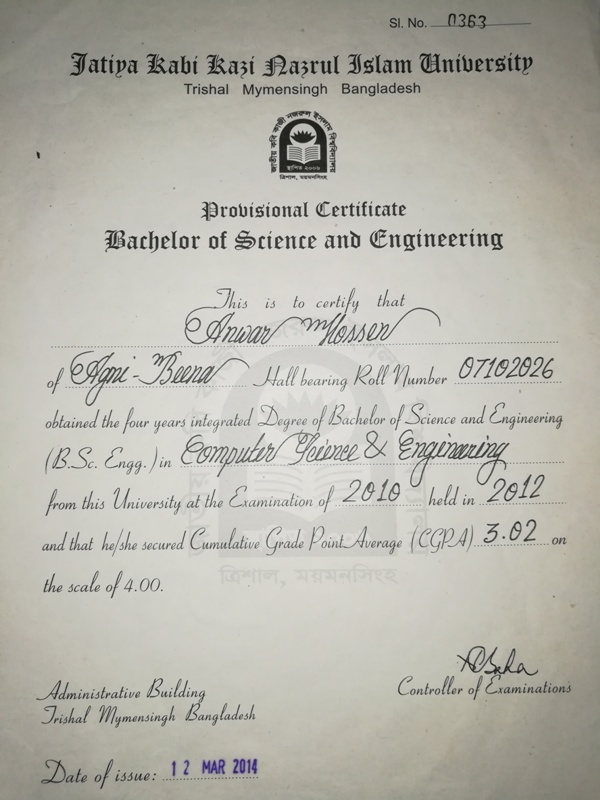 Sl. No. 0363
Jatiya Kabi Kazi Nazrul Islam University
Trishal Mymensingh Bangladesh
জাতীয় কবি কাজী নজরুল ইসলাম বিশ্ববিদ্যালয়
স্থাপিত ২০০৬
ত্রিশাল, ময়মনসিংহ
Provisional Certificate
Bachelor of Science and Engineering
This is to certify that
Anwar Hossen
of Agni-Beena Hall bearing Roll Number 07102026
obtained the four years integrated Degree of Bachelor of Science and Engineering
(B.Sc. Engg.) in Computer Science & Enginering
from this University at the Examination of 2010 held in 2012
and that he/she secured Cumulative Grade Point Average (CGPA) 3.02 on
ত্রিশাল, ময়মনসিংহ
the scale of 4.00.
Controller of Examinations
Administrative Building
Trishal Mymensingh Bangladesh
Date of issue: 12 MAR 2014